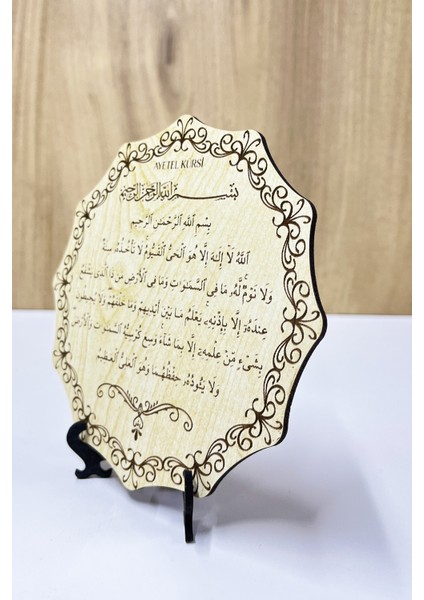 AYETEL KÜRSİ
بِسْمِ اللهِ الرَّحْمٰنِ الرَّحِيمِ
بِسْمِ اللهِ الرَّحْمٰنِ الرَّحِيمِ
اَللّٰهُ لَٓا اِلٰهَ اِلَّا هُوَ الْحَيُّ الْقَيُّومُ لَا تَأْخُذُهُ سِنَةٌ
وَلَا نَوْمٌ لَهُ مَا فِي السَّمٰوَاتِ وَمَا فِي الْاَرْضِ مَنْ ذَا الَّذِي يَشْفَعُ
عِنْدَهُٓ اِلَّا بِاِذْنِهِ يَعْلَمُ مَا بَيْنَ اَيْدِيهِمْ وَمَا خَلْفَهُمْ وَلَا يُحِيطُونَ
بِشَيْءٍ مِنْ عِلْمِهِٓ اِلَّا بِمَا شَٓاءَ وَسِعَ كُرْسِيُّهُ السَّمٰوَاتِ وَالْاَرْضَ
وَلَا يَؤُدُهُ حِفْظُهُمَا وَهُوَ الْعَلِيُّ الْعَظِيمُ